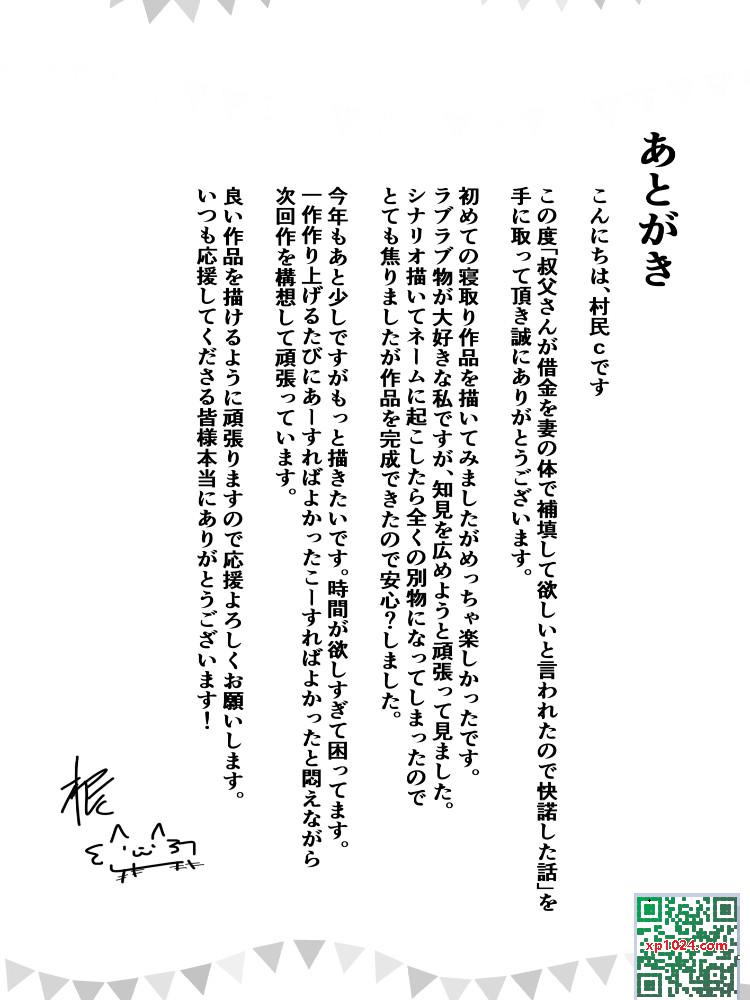 あとがき
こんにちは、村民cです
この度「叔父さんが借金を妻の体で補填して欲しいと言われたので快諾した話」を
手に取って頂き誠にありがとうございます。
初めての寝取り作品を描いてみましたがめっちゃ楽しかったです。
ラブラブ物が大好きな私ですが、知見を広めようと頑張って見ました。
シナリオ描いてネームに起こしたら全くの別物になってしまったので
とても焦りましたが作品を完成できたので安心?しました。
今年もあと少しですがもっと描きたいです。時間が欲しすぎて困ってます。
一作作り上げるたびにあーすればよかったこーすればよかったと悶えながら
次回作を構想して頑張っています。
良い作品を描けるように頑張りますので応援よろしくお願いします。
いつも応援してくださる皆様本当にありがとうございます!
xp1024.com